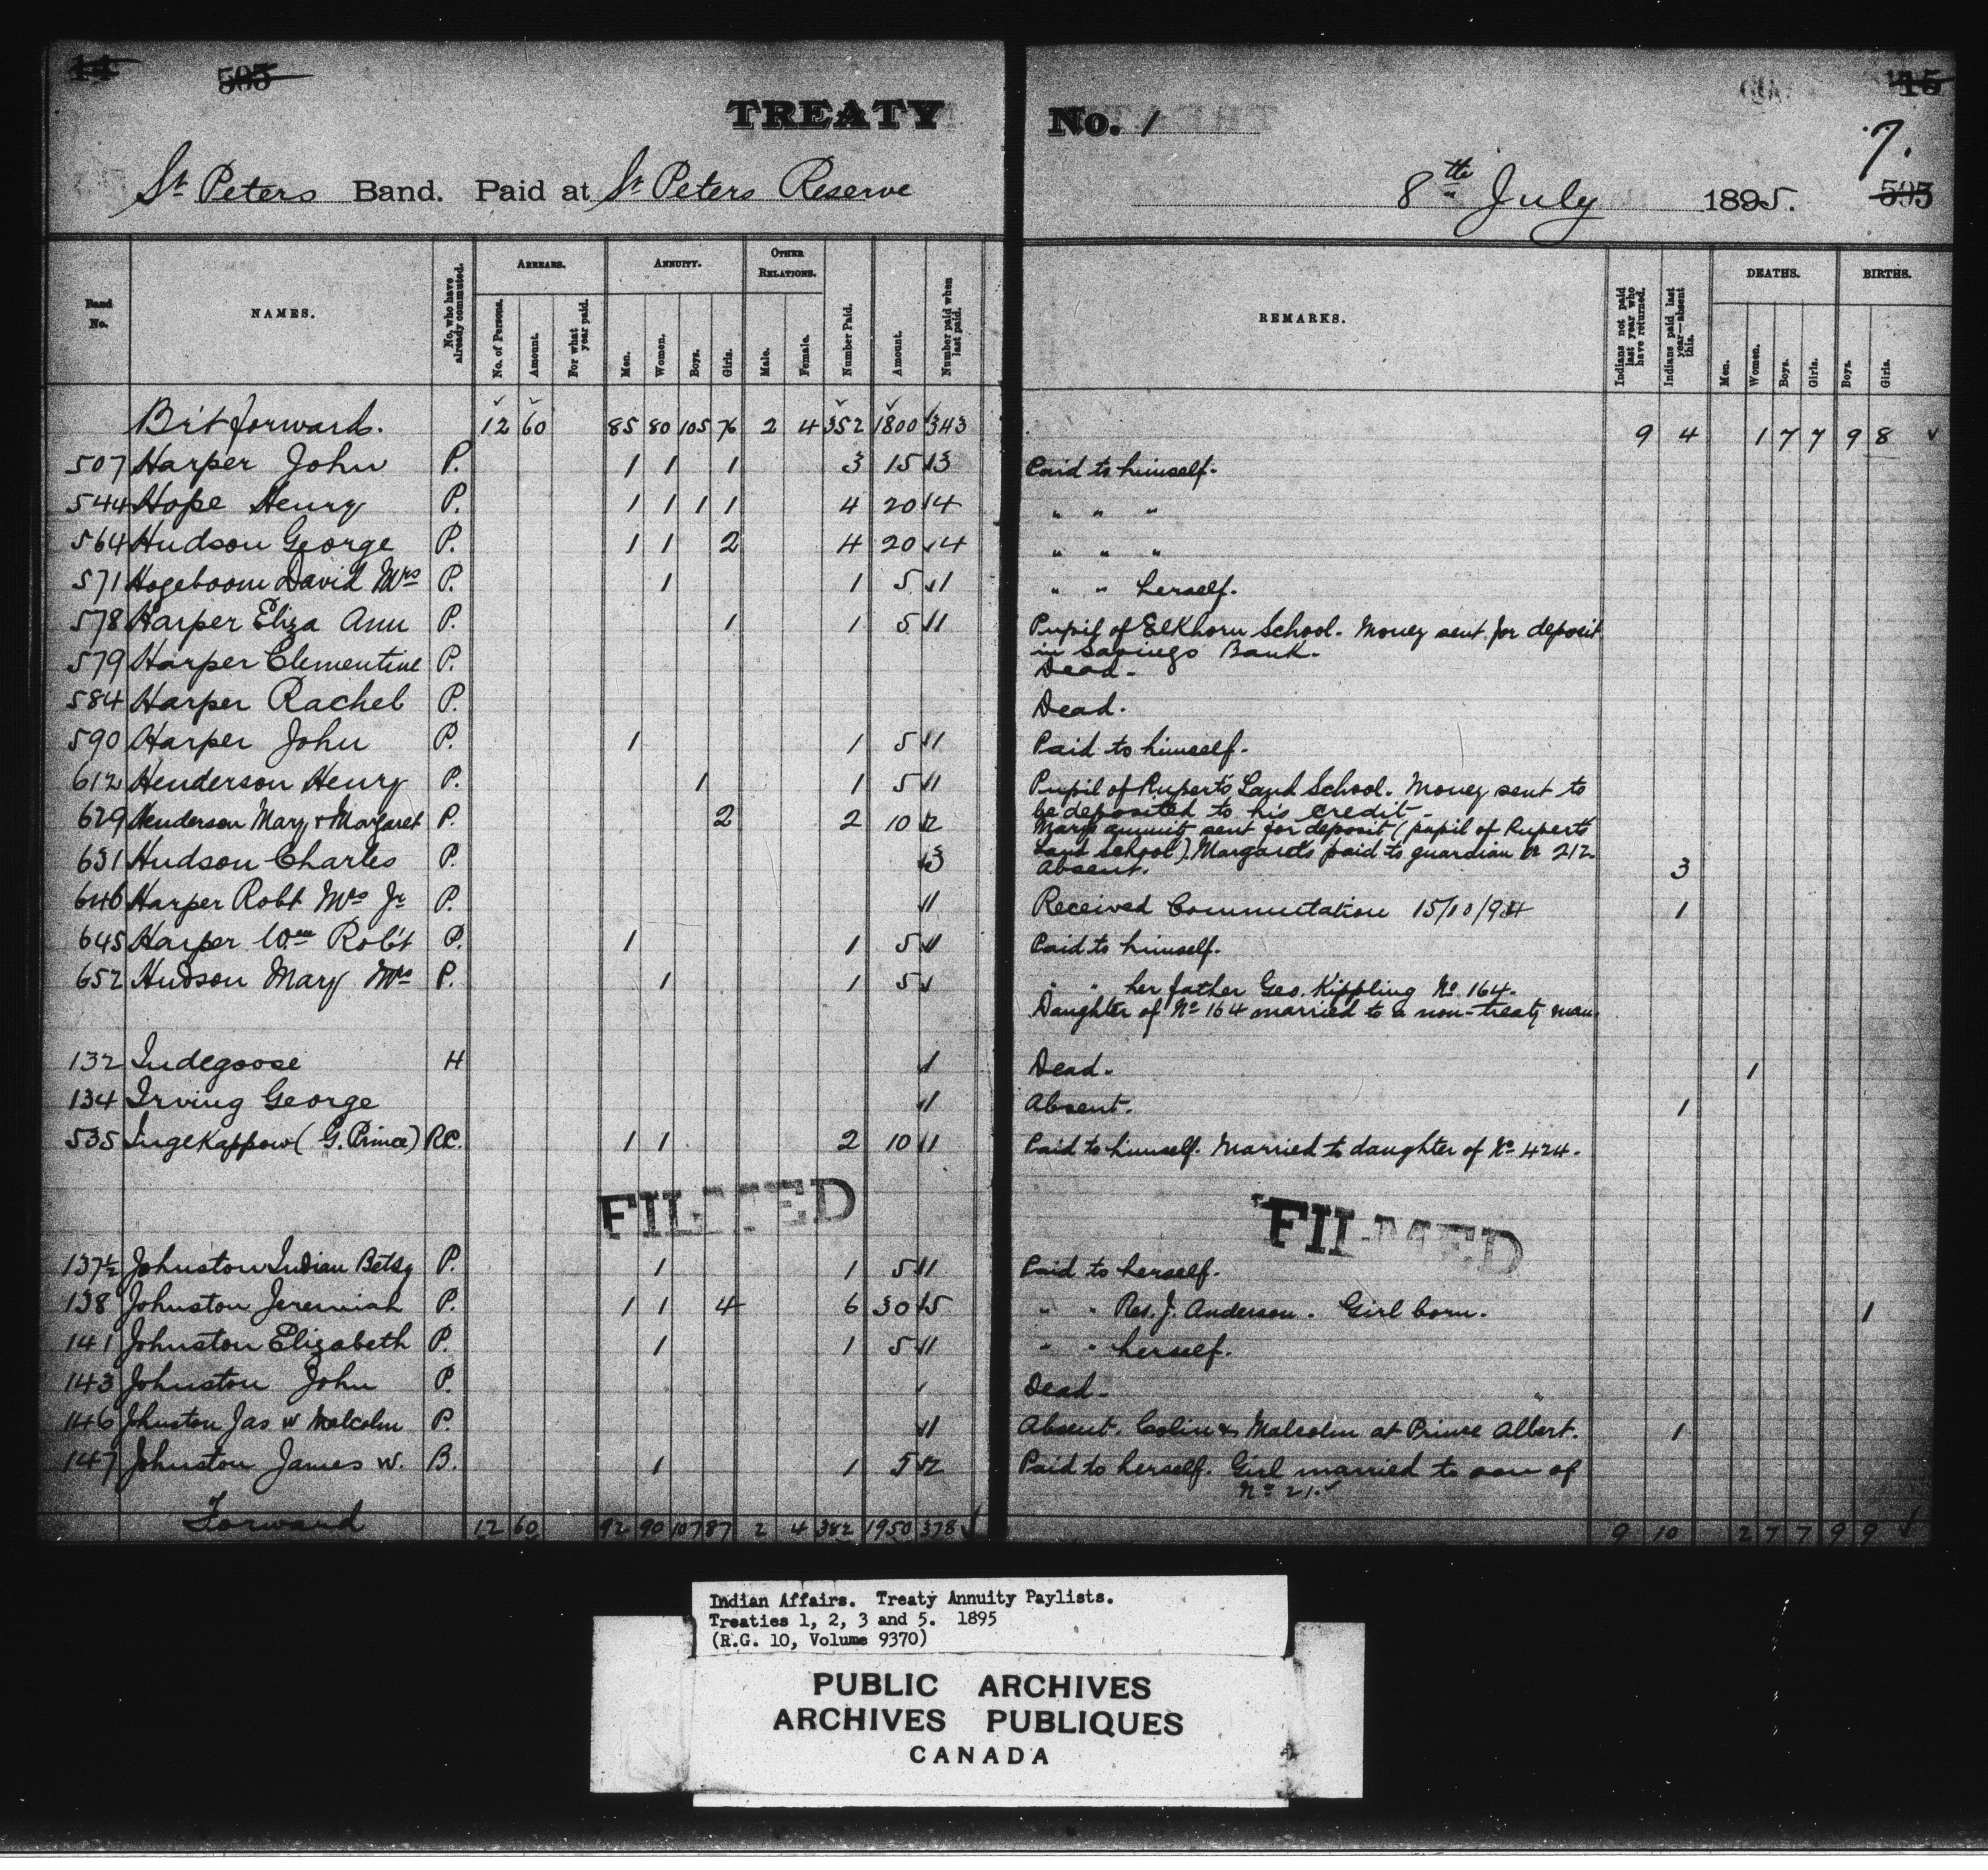 14 505
TREATY No. 1
15
7.
St Peters Band. Paid at St Peters Reserve 8th July 1895. 595
Band No. NAMES. No. who have already commuted. ARREARS. No. of Persons. Amount. For what year paid. ANNUITY. Men. Women. Boys. Girls. OTHER RELATIONS. Male. Female. Number Paid. Amount. Number paid when last paid. REMARKS. Indians not paid last year who have returned. Indians paid last year—absent this. DEATHS. Men. Women. Boys. Girls. BIRTHS. Boys. Girls.
Brt forward. 12 60 85 80 105 76 2 4 352 1800 343 9 4 1 7 7 9 8
507 Harper John P. 1 1 1 3 15 3 Paid to himself.
544 Hope Henry P. 1 1 1 1 4 20 4 " " "
564 Hudson George P. 1 1 2 4 20 4 " " "
571 Hogeboom David Mrs P. 1 1 5 1 " " herself.
578 Harper Eliza Ann P. 1 1 5 1 Pupil of Elkhorn School. Money sent for deposit
in Savings Bank.
579 Harper Clementine P. Dead.
584 Harper Rachel P. Dead.
590 Harper John P. 1 1 5 1 Paid to himself.
612 Henderson Henry P. 1 1 5 1 Pupil of Ruperts Land School. Money sent to
be deposited to his credit.
629 Henderson Mary & Margaret P. 2 2 10 2 Marys annuity sent for deposit (pupil of Ruperts
Land School). Margarets paid to guardian No 212.
631 Hudson Charles P. 3 Absent. 3
646 Harper Robt Mrs Jr P. 1 Received Commutation 15/10/94 1
645 Harper Wm Robt P. 1 1 5 1 Paid to himself.
652 Hudson Mary Mrs P. 1 1 5 " " her father Geo. Kippling No 164.
Daughter of No 164 married to a non-treaty man.
132 Indegoose H 1 Dead. 1
134 Irving George 1 Absent. 1
535 Ingekappow (G. Prince) R.C. 1 1 2 10 1 Paid to himself. Married to daughter of No 424.
FILMED FILMED
137½ Johnston Indian Betsy P. 1 1 5 1 Paid to herself.
138 Johnston Jeremiah P. 1 1 4 6 30 5 " " Res. J. Anderson. Girl born. 1
141 Johnston Elizabeth P. 1 1 5 1 " " herself.
143 Johnston John P. Dead.
146 Johnston Jas W Malcolm P. 1 Absent. Colin & Malcolm at Prince Albert. 1
147 Johnston James W. B. 1 1 5 2 Paid to herself. Girl married to son of
No 21.
Forward 12 60 92 90 107 87 2 4 382 1950 378 9 10 2 7 7 9 9
Indian Affairs. Treaty Annuity Paylists.
Treaties 1, 2, 3 and 5. 1895
(R.G. 10, Volume 9370)
PUBLIC ARCHIVES
ARCHIVES PUBLIQUES
CANADA